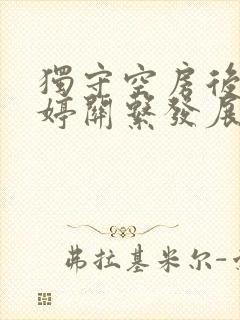 獨守空房後
婷關繫發展
弗拉基米尔-